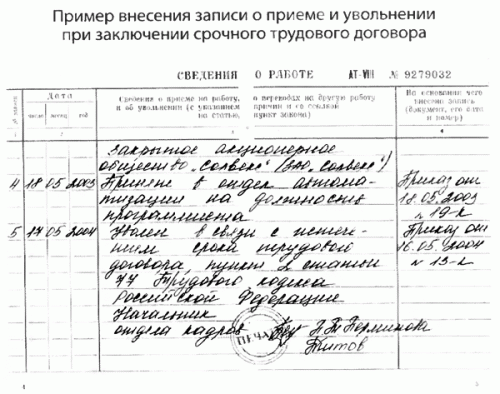 Пример внесения записи о приеме и увольнении
при заключении срочного трудового договора
СВЕДЕНИЯ О РАБОТЕ АТ-VIII № 9279032
№ записи
Дата
число месяц год
Сведения о приеме на работу, о переводах на другую работу
и об увольнении (с указанием причин и со ссылкой
на статью, пункт закона)
На основании чего
внесена запись
(документ, его дата
и номер)
2 4
Закрытое акционерное
общество „Солвекс“ (ЗАО „Солвекс“)
4 18 05 2003 Принят в отдел автома- Приказ от
тизации на должность 18.05.2003
программиста n 19-к
5 17 05 2004 Уволен в связи с истече- Приказ от
нием срока трудового 16.05.2004
договора, пункт 2 статьи n 13-к
77 Трудового кодекса
Российской Федерации
Начальник
отдела кадров Н.Т. Перминова
ПЕЧАТЬ Титов